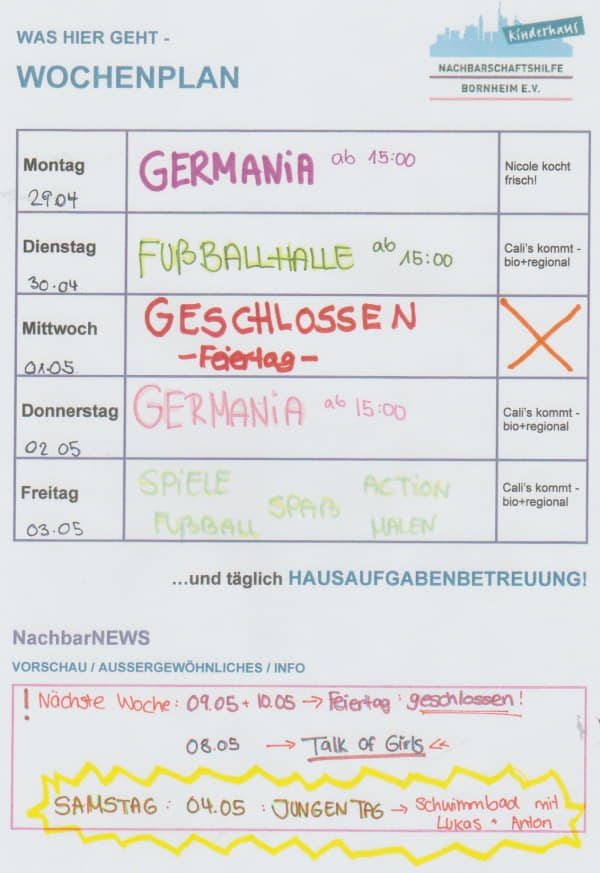 WAS HIER GEHT -
WOCHENPLAN
Kinderhaus
NACHBARSCHAFTSHILFE
BORNHEIM E.V.
Montag
29.04
GERMANiA ab 15:00
Nicole kocht
frisch!
Dienstag
30.04
FUßBALLHALLE ab 15:00
Cali's kommt -
bio+regional
Mittwoch
01.05
GESCHLOSSEN
- Feiertag -
Donnerstag
02 05
GERMANiA ab 15:00
Cali's kommt -
bio+regional
Freitag
03.05
SPiELE SPAß ACTiON
FUßBALL MALEN
Cali's kommt -
bio+regional
...und täglich HAUSAUFGABENBETREUUNG!
NachbarNEWS
VORSCHAU / AUSSERGEWÖHNLICHES / INFO
! Nächste Woche: 09.05 + 10.05 → Feiertag : geschlossen!
08.05 → Talk of Girls
SAMSTAG : 04.05 : JUNGEN TAG → Schwimmbad mit
Lukas + Anton